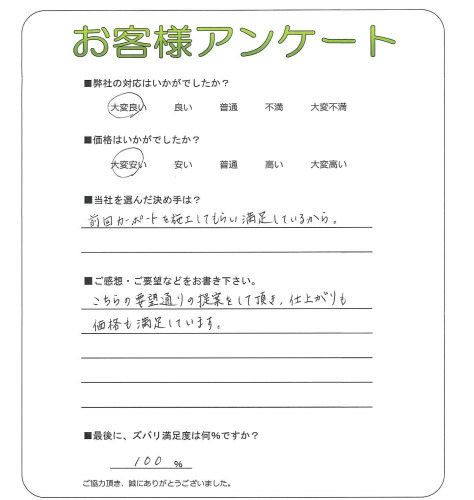 お客様アンケート
■弊社の対応はいかがでしたか？
大変良い 良い 普通 不満 大変不満
■価格はいかがでしたか？
大変安い 安い 普通 高い 大変高い
■当社を選んだ決め手は？
前回カーポートを施工してもらい満足しているから。
■ご感想・ご要望などをお書き下さい。
こちらの要望通りの提案をして頂き、仕上がりも
価格も満足しています。
■最後に、ズバリ満足度は何％ですか？
100 ％
ご協力頂き、誠にありがとうございました。